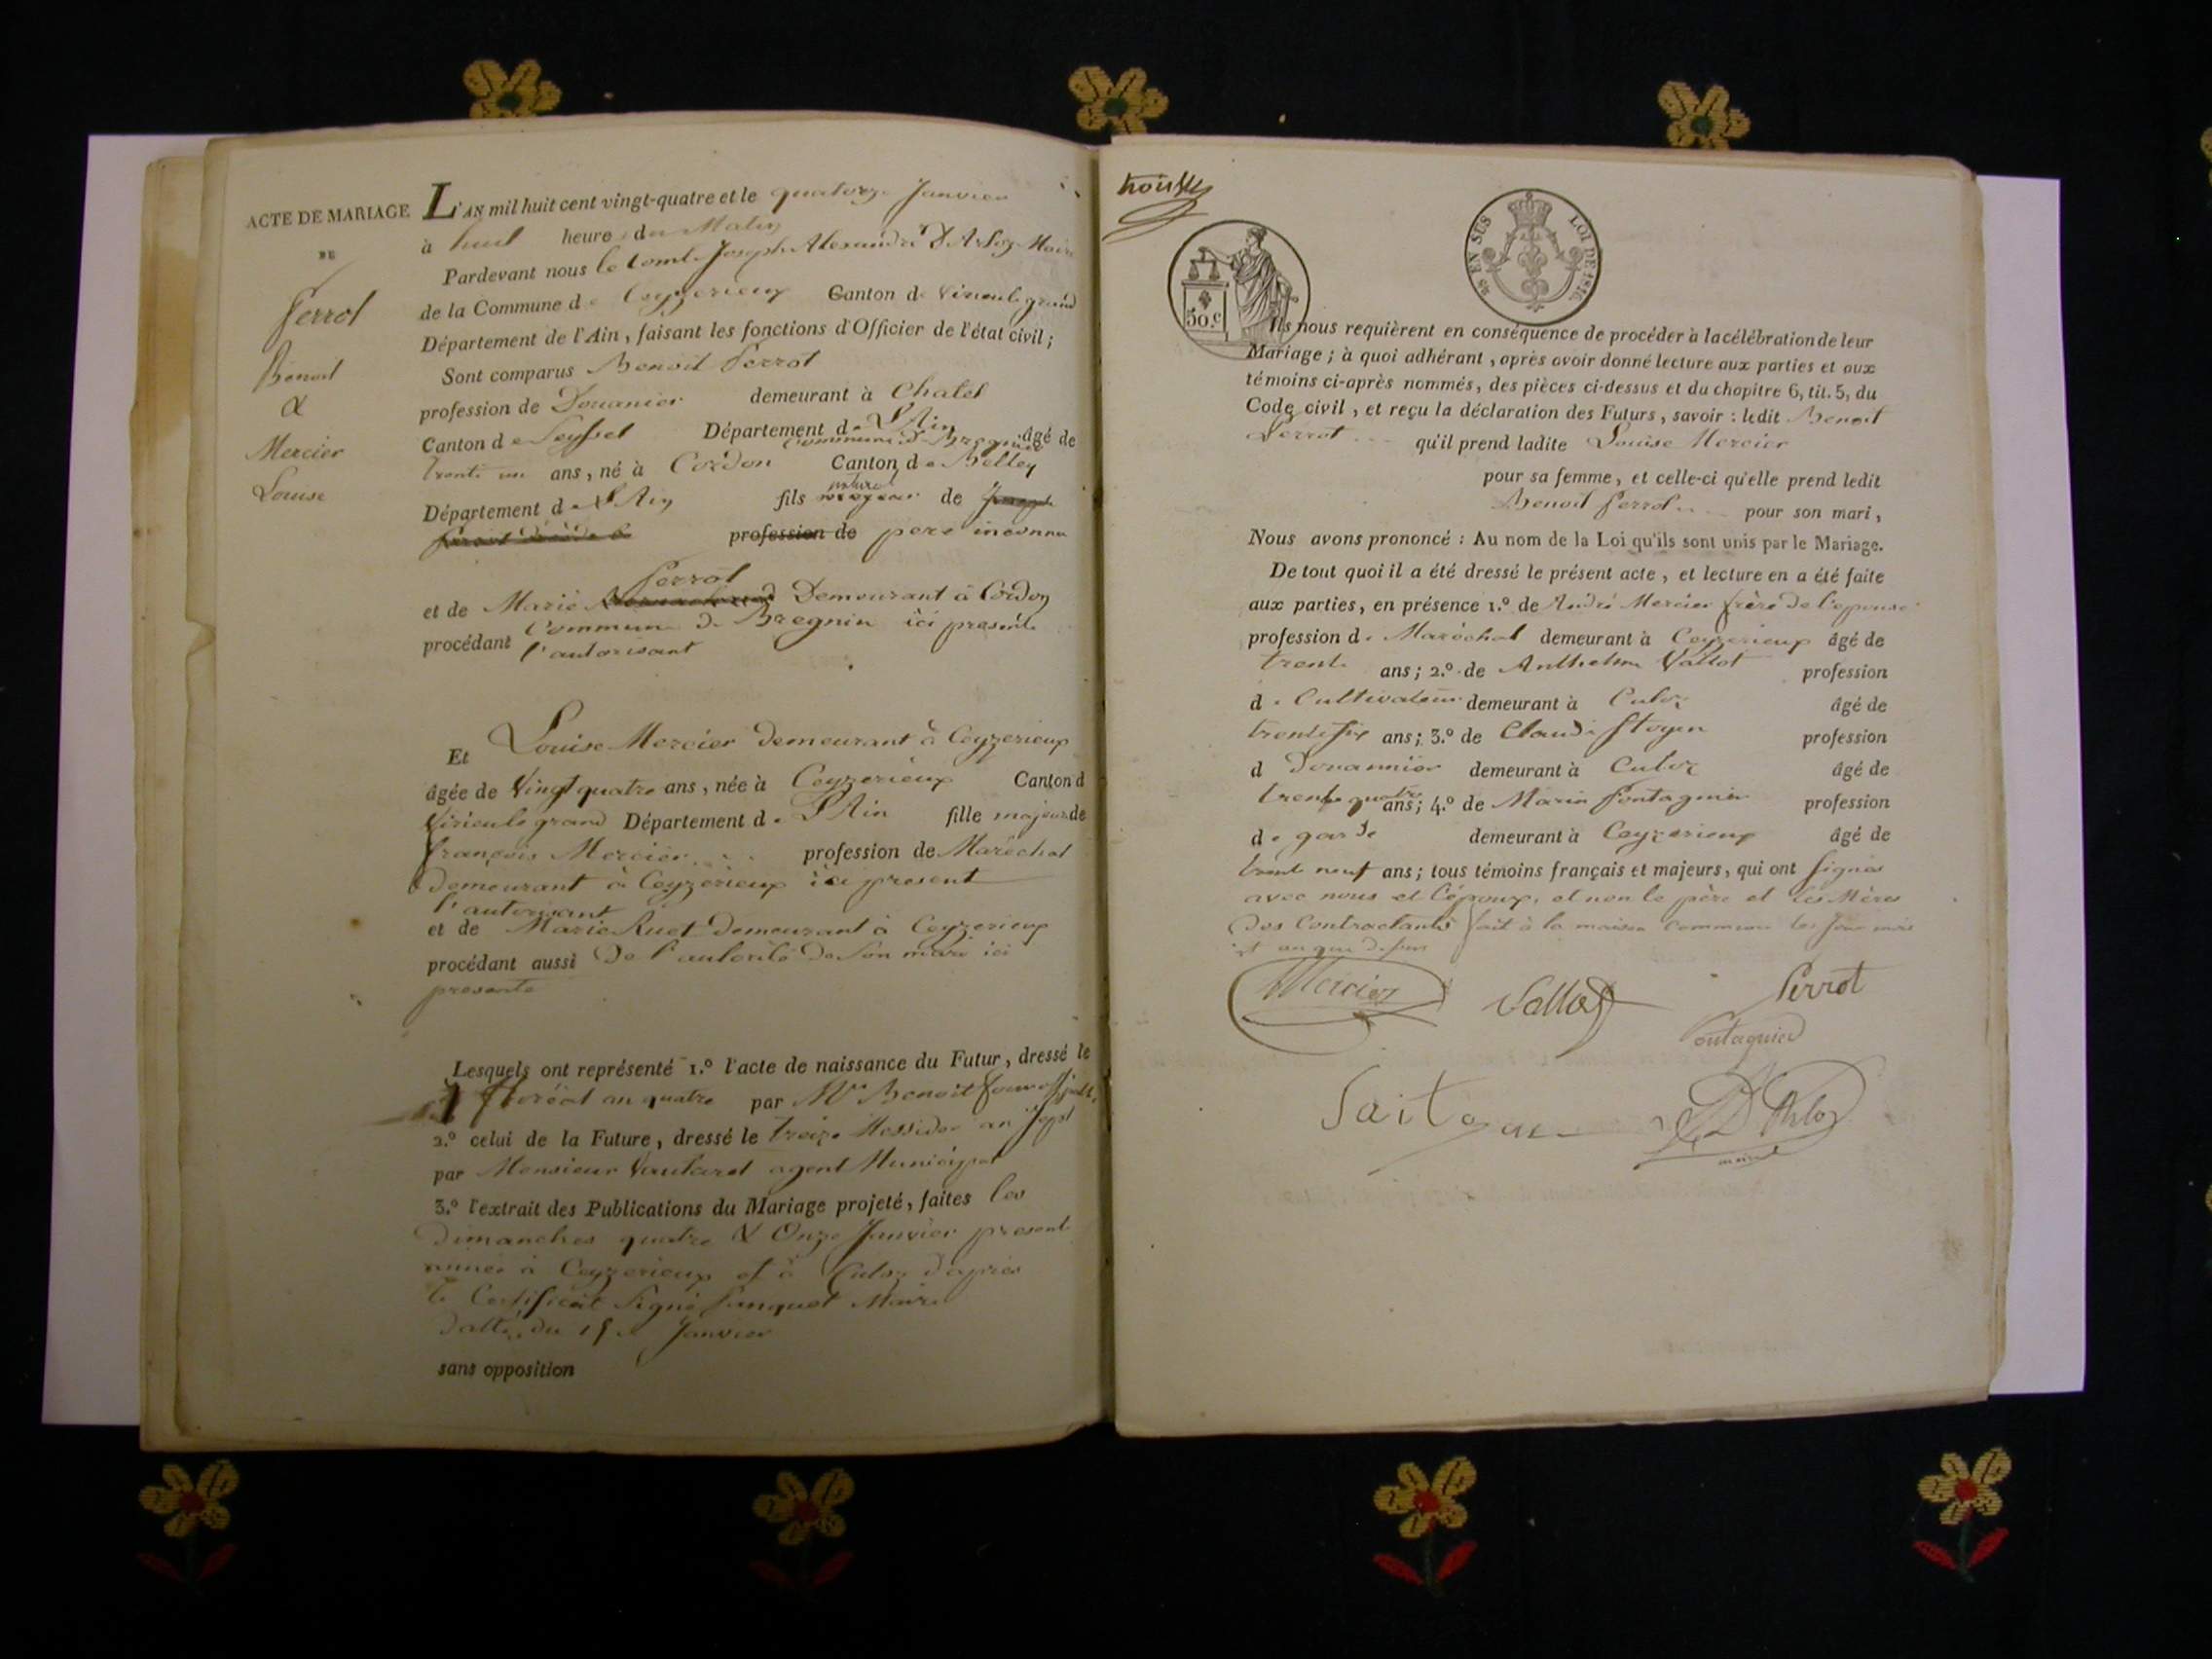 ACTE DE MARIAGE
DE
Perrot
Benoit
&
Mercier
Louise
L'AN mil huit cent vingt-quatre et le quatorze Janvier
à huit heure du Matin
Pardevant nous le Comte Joseph Alexandre D'Arloz Maire
de la Commune de Ceyzerieux Canton de Virieu le grand
Département de l'Ain, faisant les fonctions d'Officier de l'état civil;
Sont comparus Benoit Perrot
profession de Douanier demeurant à Chatel
Canton de Seyssel Département de L'Ain âgé de
commune de Bregnier
trente un ans, né à Cordon Canton de Belley
Département de L'Ain fils naturel de
profession de père inconnu
Perrot
et de Marie Demeurant à Cordon
procédant Commune de Bregnier ici présente
l'autorisant
Et Louise Mercier demeurant à Ceyzerieux
âgée de Vingt quatre ans, née à Ceyzerieux Canton d
Virieu le grand Département de L'Ain fille majeure de
françois Mercier profession de Maréchal
demeurant à Ceyzerieux ici present
l'autorisant
et de Marie Ruet demeurant à Ceyzerieux
procédant aussi De l'autorité de Son mari ici
presente
Lesquels ont représenté 1.º l'acte de naissance du Futur, dressé le
floréal an quatre par Mr Benoit
2.º celui de la Future, dressé le treize Messidor an Sept
par Monsieur Vautaret agent Municipal
3.º l'extrait des Publications du Mariage projeté, faites les
Dimanches quatre & Onze Janvier present
année à Ceyzerieux et à Culoz d'après
le Certificat Signé Maire
datté du Janvier
sans opposition
trois
50.c
EN SUS
LOI DE 1816
Ils nous requièrent en conséquence de procéder à la célébration de leur
Mariage; à quoi adhérant, après avoir donné lecture aux parties et aux
témoins ci-après nommés, des pièces ci-dessus et du chapitre 6, tit. 5, du
Code civil, et reçu la déclaration des Futurs, savoir: ledit Benoit
Perrot qu'il prend ladite Louise Mercier
pour sa femme, et celle-ci qu'elle prend ledit
Benoit Perrot pour son mari,
Nous avons prononcé: Au nom de la Loi qu'ils sont unis par le Mariage.
De tout quoi il a été dressé le présent acte, et lecture en a été faite
aux parties, en présence 1.º de André Mercier frère de l'epouse
profession de Maréchal demeurant à Ceyzerieux âgé de
trente ans; 2.º de Anthelme Vallot profession
de Cultivateur demeurant à Culoz âgé de
trente six ans; 3.º de Claude profession
d Douannier demeurant à Culoz âgé de
trente quatre ans; 4.º de Marin Pontagnier profession
de garde demeurant à Ceyzerieux âgé de
trente neuf ans; tous témoins français et majeurs, qui ont Signés
avec nous et l'époux, et non le père et les Mères
Des Contractants fait à la maison commune les jour mois
et an que dessus
Mercier Vallot Perrot
Pontagnier
D'Arloz
maire